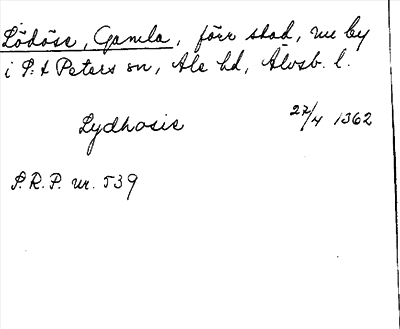 Lödöse, Gamla, förr stad, nu by
i S:t Peters sn, Ale hd, Älvsb. l.
Lydhosie 27/4 1362
S.R.P. nr. 539